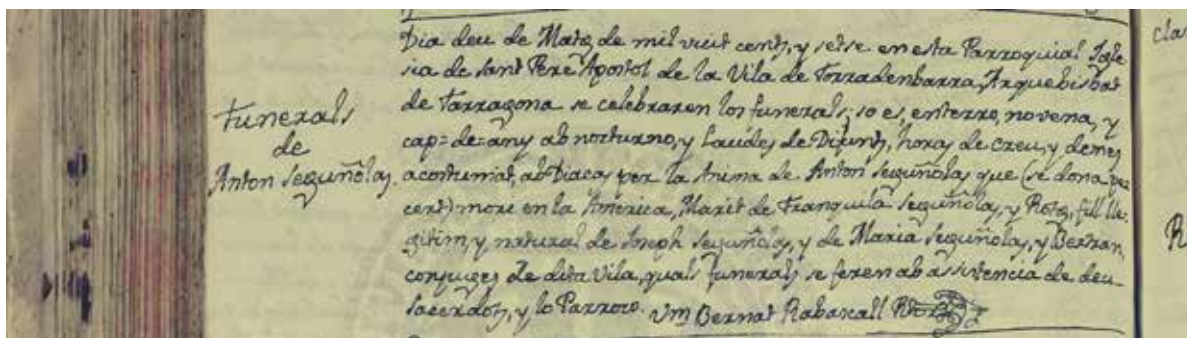 Funerals
de
Anton Seguñolas.
Dia deu de Mars de mil vuit cents, y setse en esta Parroquial Igle
sia de Sant Pere Apostol de la Vila de Torradenbarra, Arquebisbat
de Tarragona se celebraren los funerals; so es, enterro, novena, y
cap=de=any ab nocturno, y Laudes de Difunts, horas de creu, y demes
acostumat, ab Diacas per la Anima de Anton Seguñolas que (se dona per
cert) morí en la América, Marit de Tranquila Seguñolas, y Roig, fill lle-
gitim, y natural de Joseph Seguñolas, y de Maria Seguñolas, y Bertran,
conjuges de dita Vila, quals funerals se feren ab assistencia de deu
Sacerdots, y lo Parroco. Bernat Rabascall
cla
R